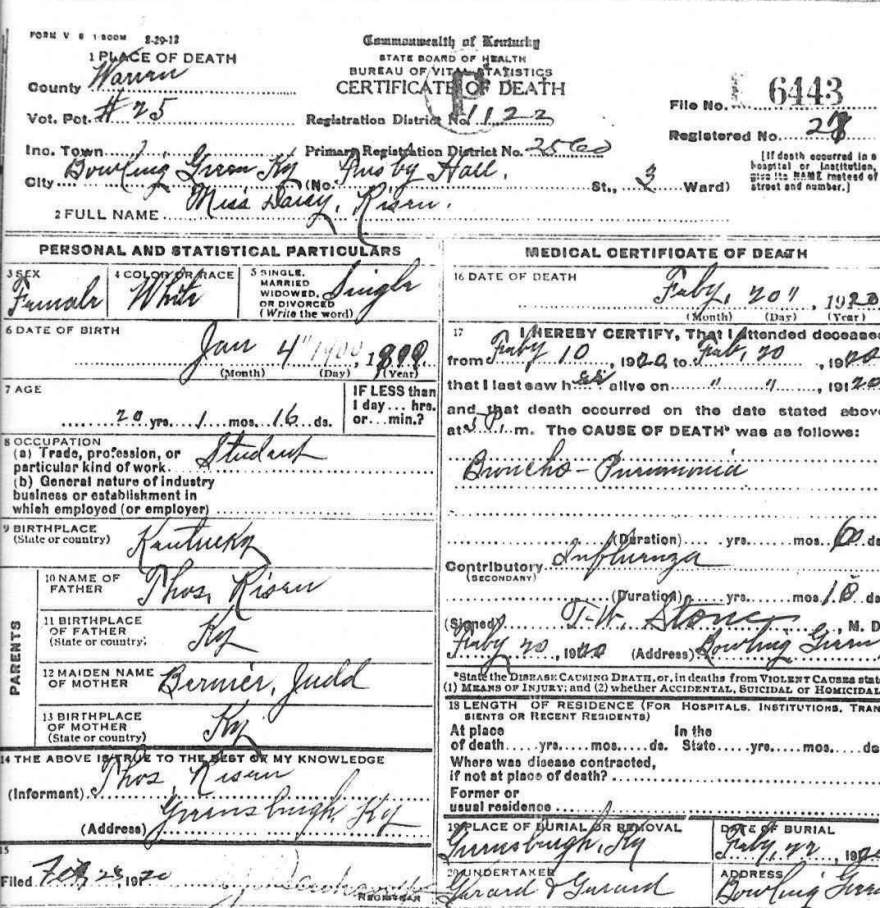 FORM V S 1 500M 8-29-12
Commonwealth of Kentucky
STATE BOARD OF HEALTH
BUREAU OF VITAL STATISTICS
CERTIFICATE OF DEATH
1 PLACE OF DEATH
County Warren
Vot. Pct. #25
Registration District No. 1122
File No. 6443
Registered No.
Inc. Town
Primary Registration District No. 2560
[If death occurred in a hospital or institution, give its NAME instead of street and number.]
City Bowling Green Ky (No. Hall. St., 3 Ward)
2 FULL NAME Miss Daisy, Risen.
PERSONAL AND STATISTICAL PARTICULARS
3 SEX Female
4 COLOR OR RACE White
5 SINGLE, MARRIED WIDOWED, OR DIVORCED (Write the word) Single
6 DATE OF BIRTH
Jan 4" 1900, 1899
(Month) (Day) (Year)
7 AGE
20 yrs. 1 mos. 16 ds.
IF LESS than 1 day... hrs. or... min.?
8 OCCUPATION
(a) Trade, profession, or particular kind of work. Student
(b) General nature of industry
business or establishment in
which employed (or employer)
9 BIRTHPLACE
(State or country) Kentucky
PARENTS
10 NAME OF FATHER Thos, Risen
11 BIRTHPLACE OF FATHER (State or country) Ky
12 MAIDEN NAME OF MOTHER Bernier, Judd
13 BIRTHPLACE OF MOTHER (State or country) Ky
14 THE ABOVE IS TRUE TO THE BEST OF MY KNOWLEDGE
(Informant) Thos Risen
(Address) Greensburgh Ky
15
Filed Feb 23, 1920
REGISTRAR
MEDICAL CERTIFICATE OF DEATH
16 DATE OF DEATH
Feby, 20", 1920
(Month) (Day) (Year)
17 I HEREBY CERTIFY, That I attended deceased
from Feby 10, 1920 to Feb, 20, 1920
that I last saw her alive on " ", 1920
and that death occurred on the date stated above
at m. The CAUSE OF DEATH* was as follows:
Broncho-Pneumonia
(Duration) yrs. mos. ds
Contributory Influenza
(SECONDARY)
(Duration) yrs. mos. 10 ds
(Signed) T.W. Stone, M. D
Feby 20, 1920 (Address) Bowling Green
*State the DISEASE CAUSING DEATH, or, in deaths from VIOLENT CAUSES stat
(1) MEANS OF INJURY; and (2) whether ACCIDENTAL, SUICIDAL OR HOMICIDAL
18 LENGTH OF RESIDENCE (FOR HOSPITALS, INSTITUTIONS, TRAN
SIENTS OR RECENT RESIDENTS)
At place of death yrs. mos. ds.
In the State yrs. mos. ds
Where was disease contracted,
if not at place of death?
Former or
usual residence
19 PLACE OF BURIAL OR REMOVAL
Greensburgh, Ky
DATE OF BURIAL
Feby, 22, 1920
20 UNDERTAKER
Gerard & Gerard
ADDRESS
Bowling Green